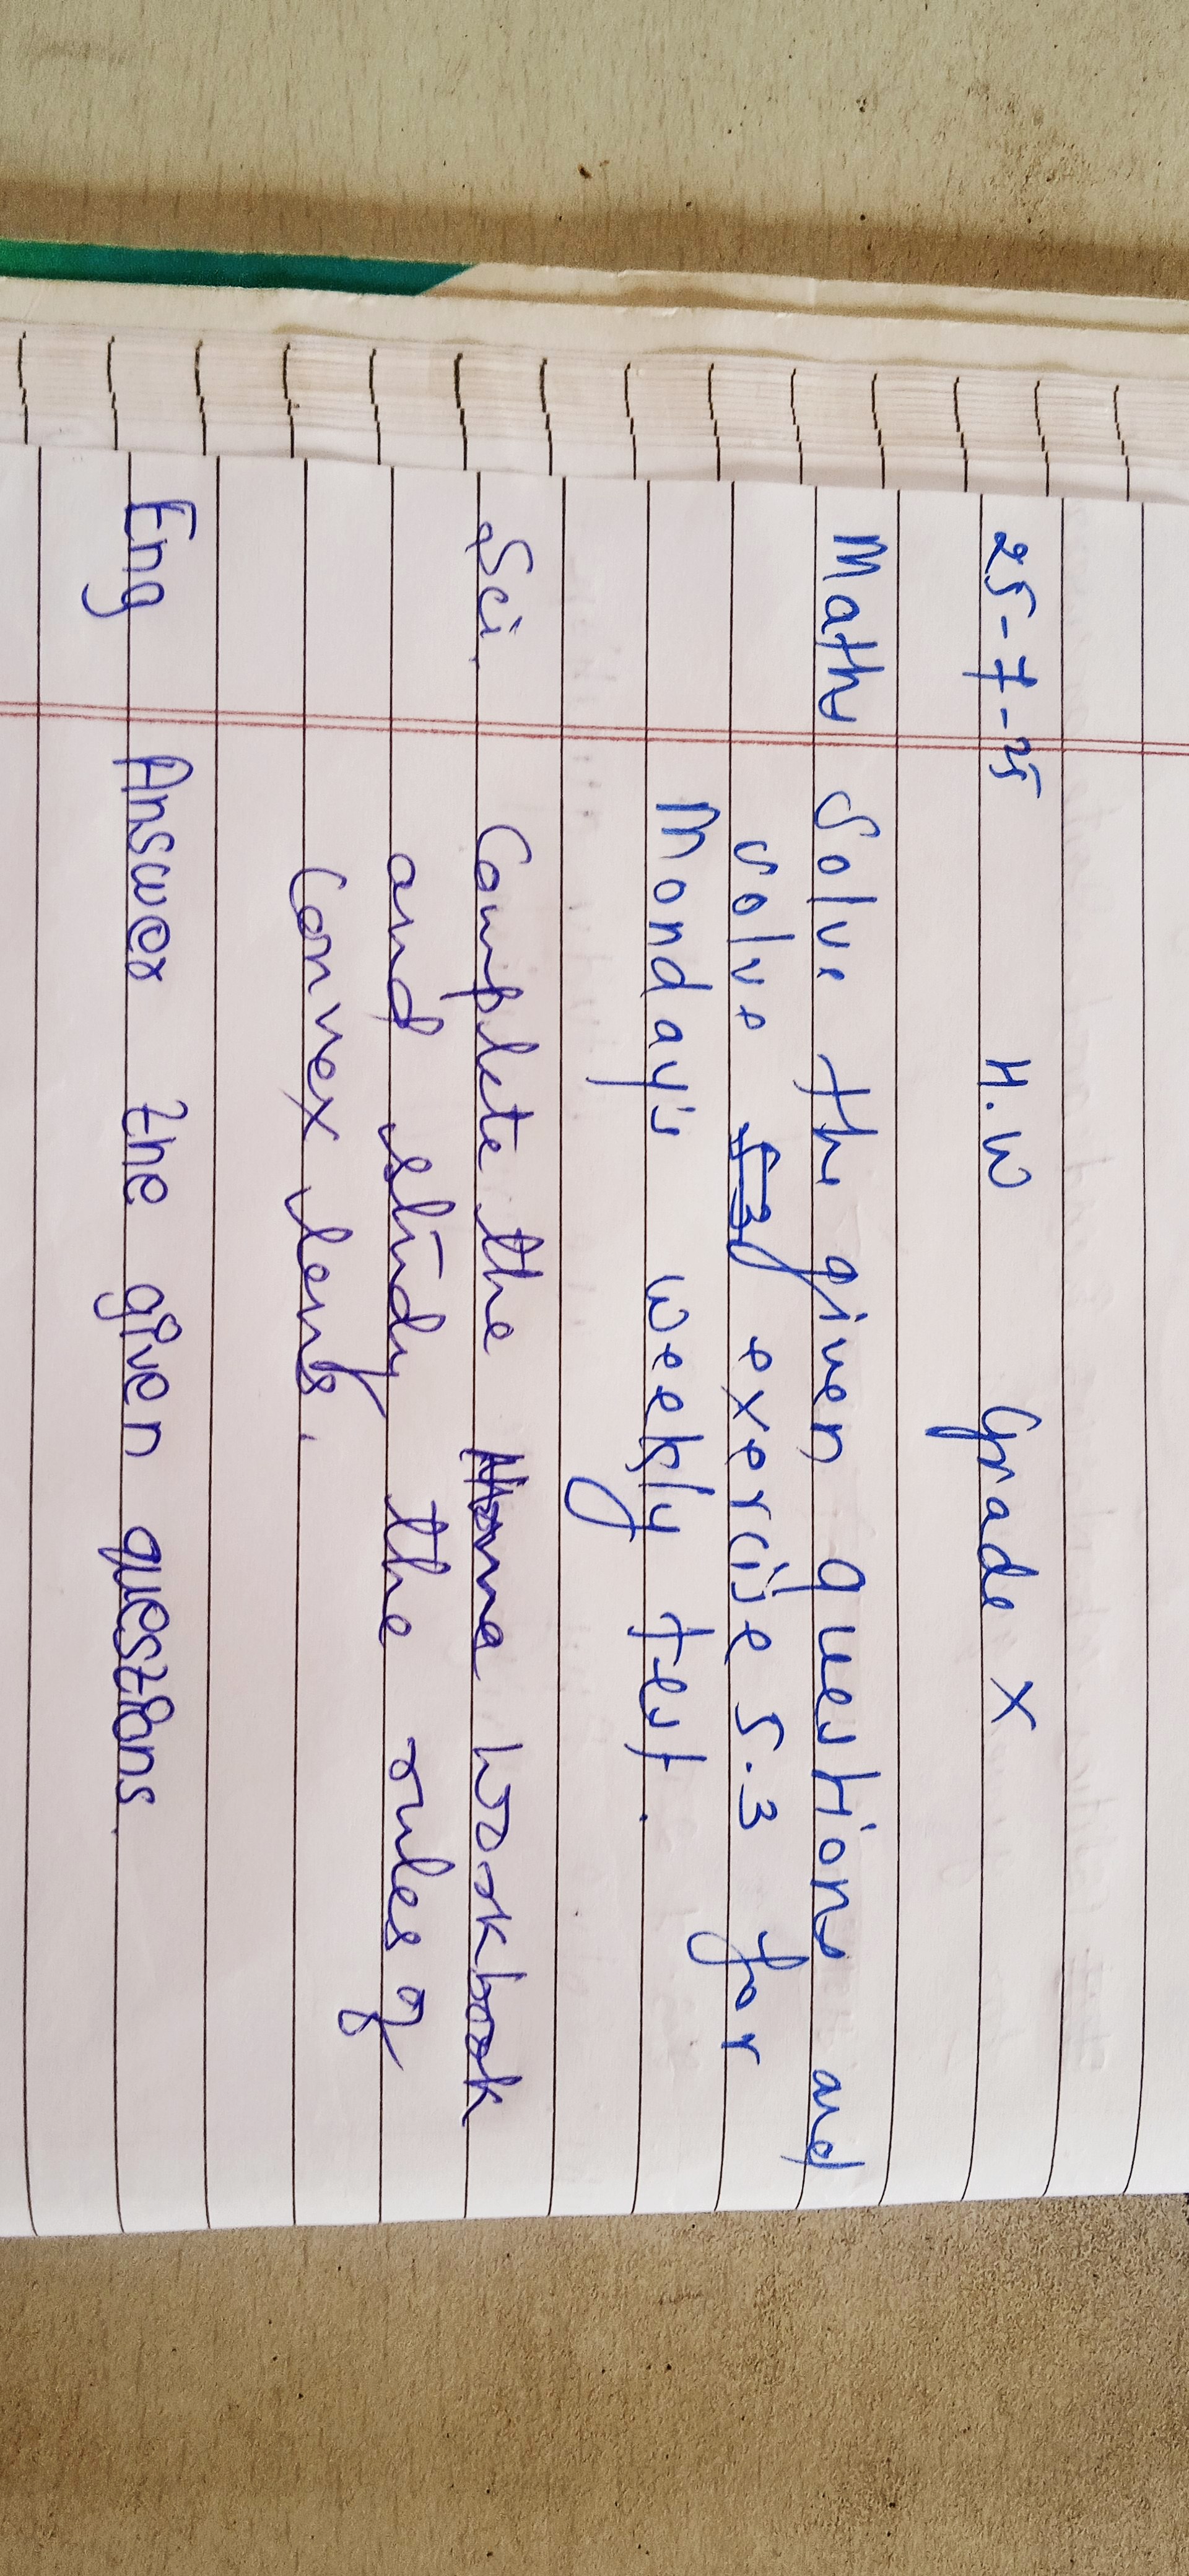 25-7-25 H.W Grade X
Maths Solve the given questions and
solve exercise 5.3 for
Monday's weekly test.
Sci. Complete the Home workbook
and study the rules of
Convex lens.
Eng Answer the given questions.